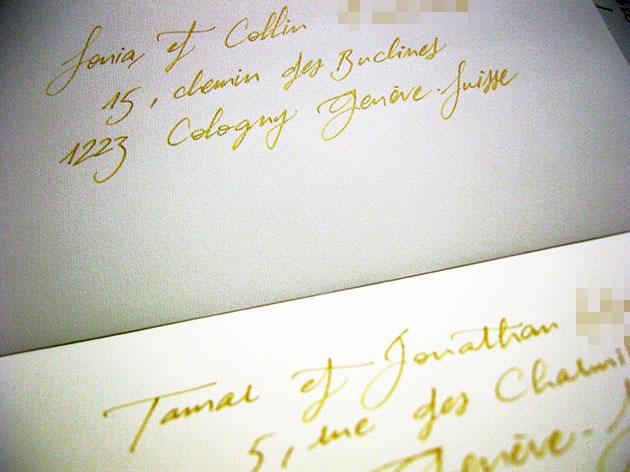 Sonia et Collin
15, chemin des Buclines
1223 Cologny Genève. Suisse
Tamar et Jonathan
5, rue des
Genève.